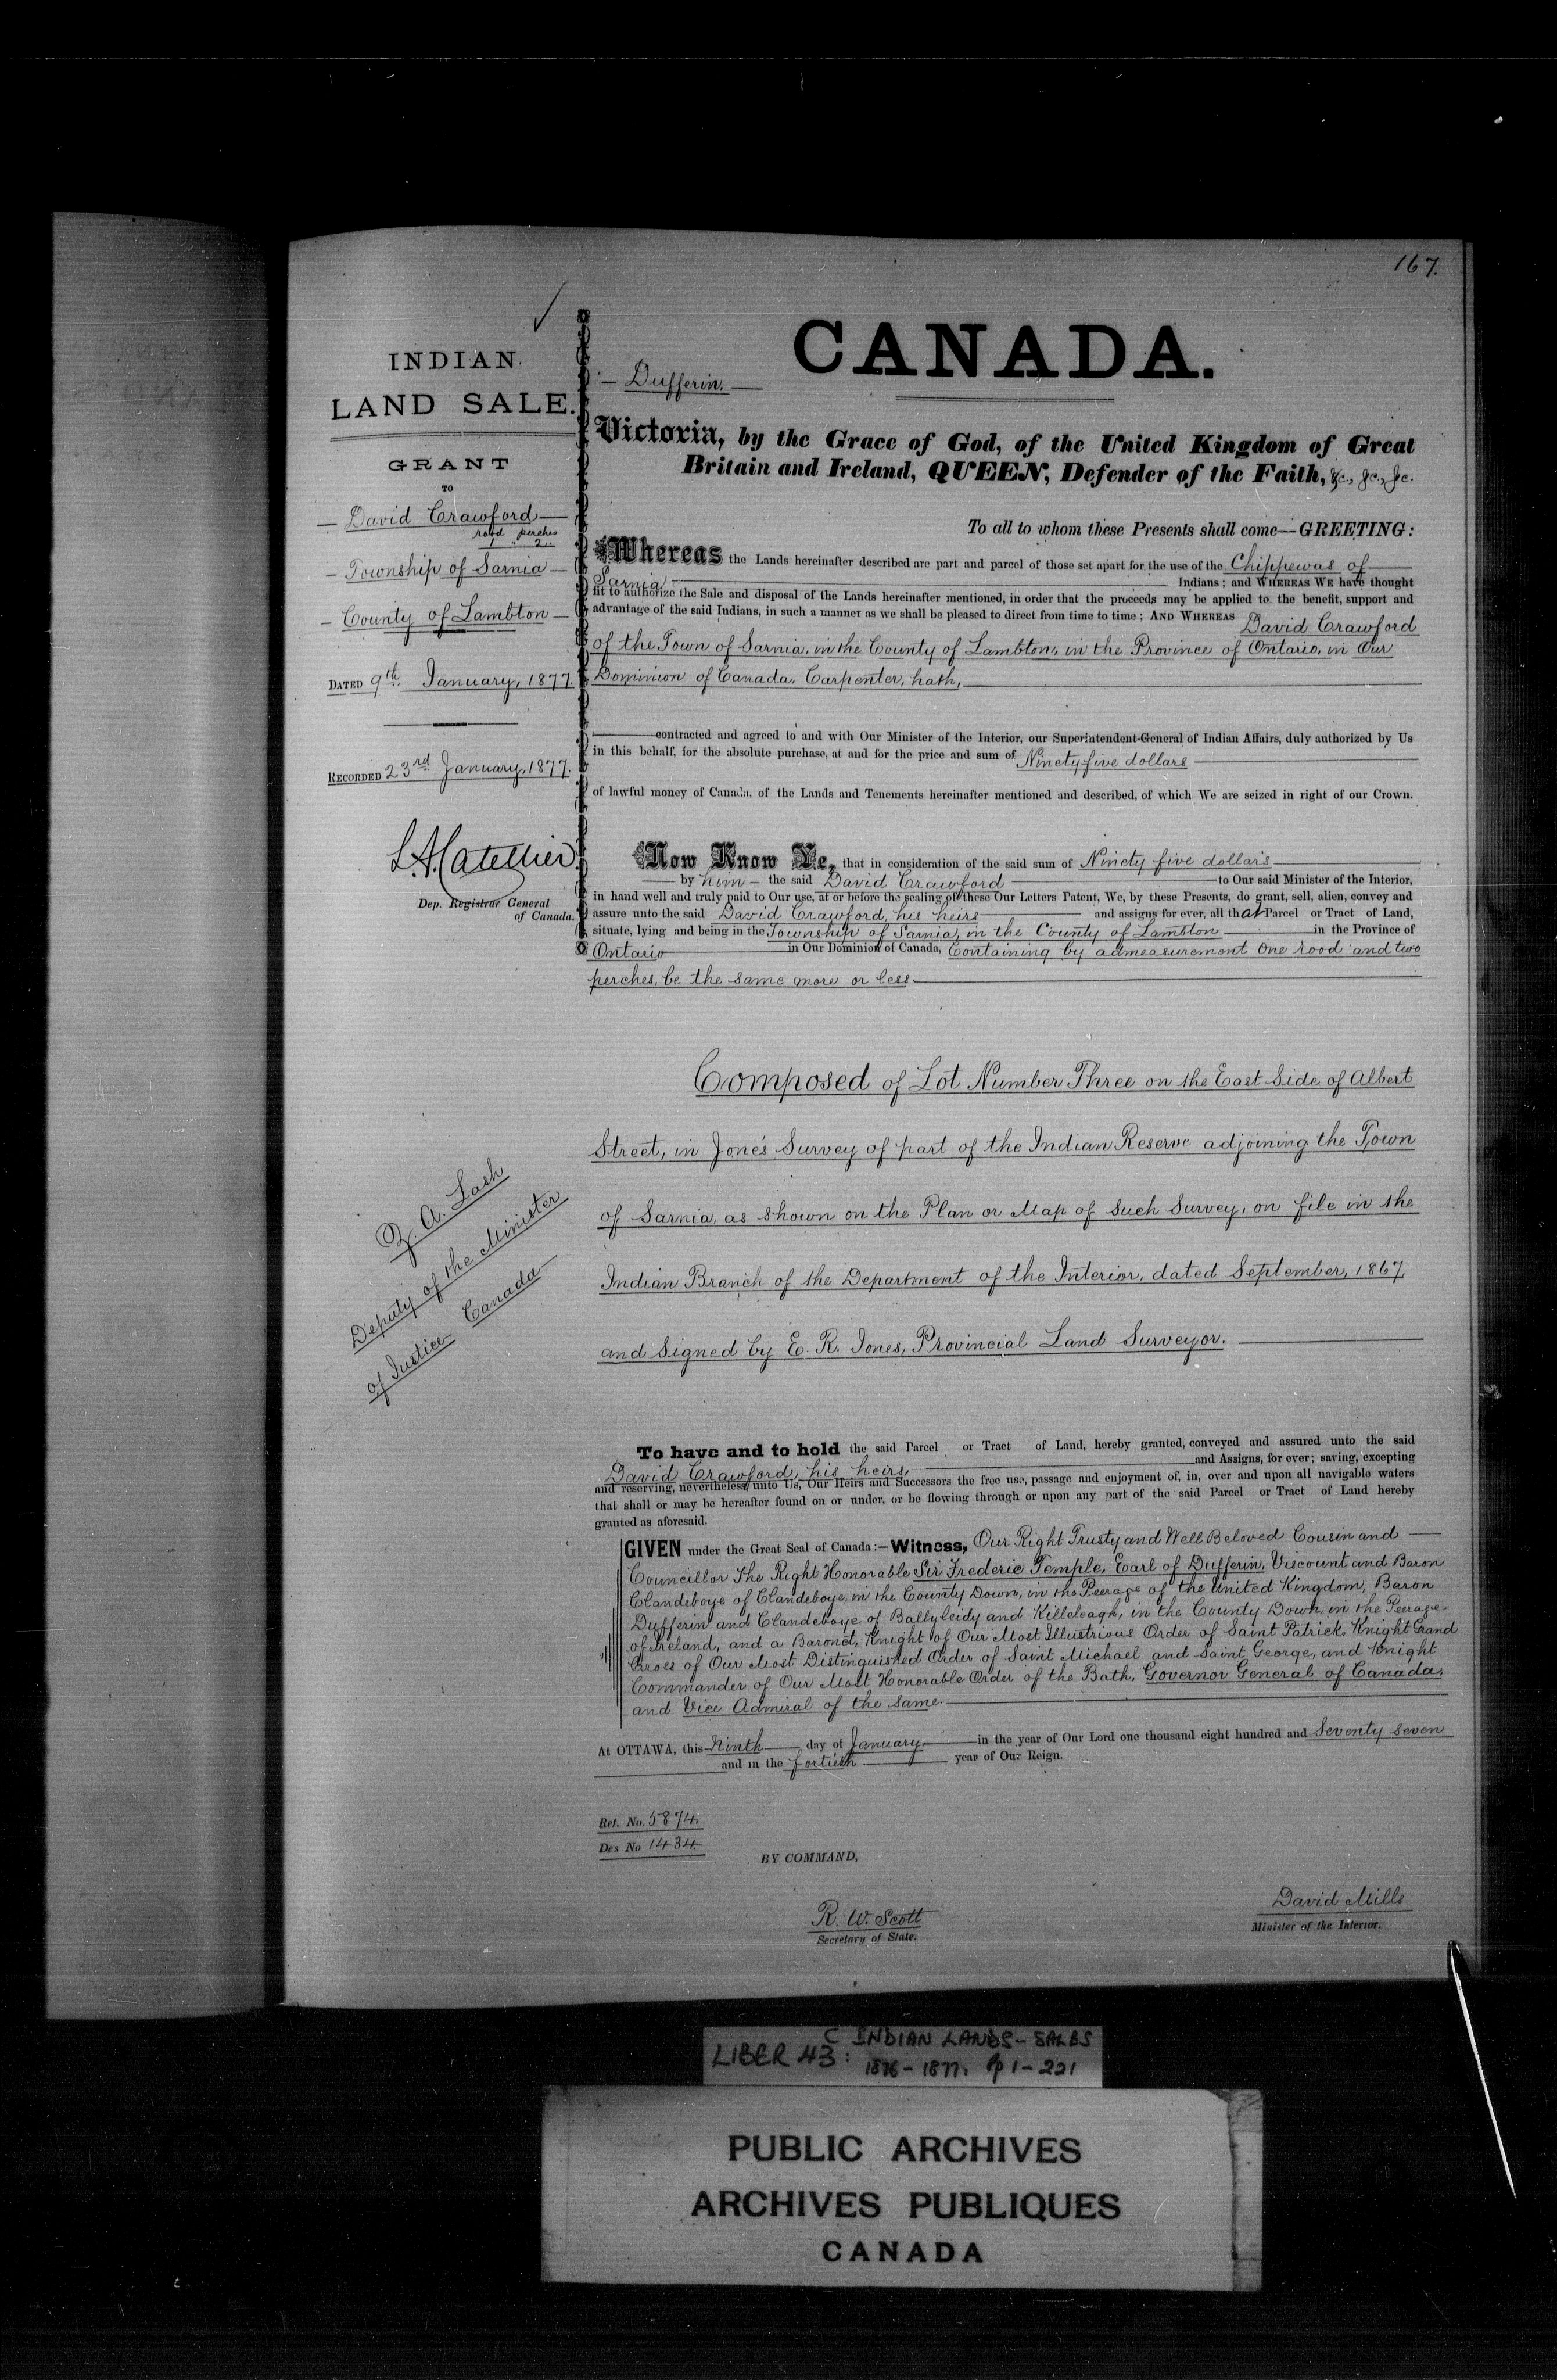 167.
INDIAN
LAND SALE.
GRANT
TO
David Crawford
rood perches
1 " 2 "
Township of Sarnia
County of Lambton
DATED 9th January, 1877.
RECORDED 23rd January, 1877.
Dep. Registrar General
of Canada.
Z. A. Lash
Deputy of the Minister
of Justice Canada
CANADA.
Dufferin.
Victoria, by the Grace of God, of the United Kingdom of Great
Britain and Ireland, QUEEN, Defender of the Faith, &c., &c., &c.
To all to whom these Presents shall come—GREETING:
Whereas the Lands hereinafter described are part and parcel of those set apart for the use of the Chippewas of
Sarnia Indians; and WHEREAS WE have thought
fit to authorize the Sale and disposal of the Lands hereinafter mentioned, in order that the proceeds may be applied to the benefit, support and
advantage of the said Indians, in such a manner as we shall be pleased to direct from time to time; AND WHEREAS David Crawford
of the Town of Sarnia, in the County of Lambton, in the Province of Ontario, in Our
Dominion of Canada, Carpenter, hath,
contracted and agreed to and with Our Minister of the Interior, our Superintendent-General of Indian Affairs, duly authorized by Us
in this behalf, for the absolute purchase, at and for the price and sum of Ninety five dollars
of lawful money of Canada, of the Lands and Tenements hereinafter mentioned and described, of which We are seized in right of our Crown.
Now Know Ye, that in consideration of the said sum of Ninety five dollars
by him the said David Crawford to Our said Minister of the Interior,
in hand well and truly paid to Our use, at or before the sealing of these Our Letters Patent, We, by these Presents, do grant, sell, alien, convey and
assure unto the said David Crawford, his heirs and assigns for ever, all that Parcel or Tract of Land,
situate, lying and being in the Township of Sarnia, in the County of Lambton in the Province of
Ontario in Our Dominion of Canada, Containing by admeasurement One rood and two
perches, be the same more or less
Composed of Lot Number Three on the East Side of Albert
Street, in Jone's Survey of part of the Indian Reserve adjoining the Town
of Sarnia, as shown on the Plan or Map of such Survey, on file in the
Indian Branch of the Department of the Interior, dated September, 1867,
and signed by E. R. Jones, Provincial Land Surveyor.
To have and to hold the said Parcel or Tract of Land, hereby granted, conveyed and assured unto the said
David Crawford, his heirs, and Assigns, for ever; saving, excepting
and reserving, nevertheless, unto Us, Our Heirs and Successors the free use, passage and enjoyment of, in, over and upon all navigable waters
that shall or may be hereafter found on or under, or be flowing through or upon any part of the said Parcel or Tract of Land hereby
granted as aforesaid.
GIVEN under the Great Seal of Canada:—Witness, Our Right Trusty and Well Beloved Cousin and
Councillor The Right Honorable Sir Frederic Temple, Earl of Dufferin, Viscount and Baron
Clandeboye of Clandeboye, in the County Down, in the Peerage of the United Kingdom, Baron
Dufferin and Clandeboye of Ballyleidy and Killeleagh, in the County Down in the Peerage
of Ireland, and a Baronet, Knight of Our Most Illustrious Order of Saint Patrick, Knight Grand
Cross of Our Most Distinguished Order of Saint Michael and Saint George, and Knight
Commander of Our Most Honorable Order of the Bath, Governor General of Canada,
and Vice Admiral of the same
At OTTAWA, this Ninth day of January in the year of Our Lord one thousand eight hundred and Seventy seven
and in the fortieth year of Our Reign.
Ref. No. 5874.
Des No 1434.
BY COMMAND,
R. W. Scott
Secretary of State.
David Mills
Minister of the Interior.
LIBER 43: C INDIAN LANDS - SALES
1876 - 1877. p 1 - 221
PUBLIC ARCHIVES
ARCHIVES PUBLIQUES
CANADA